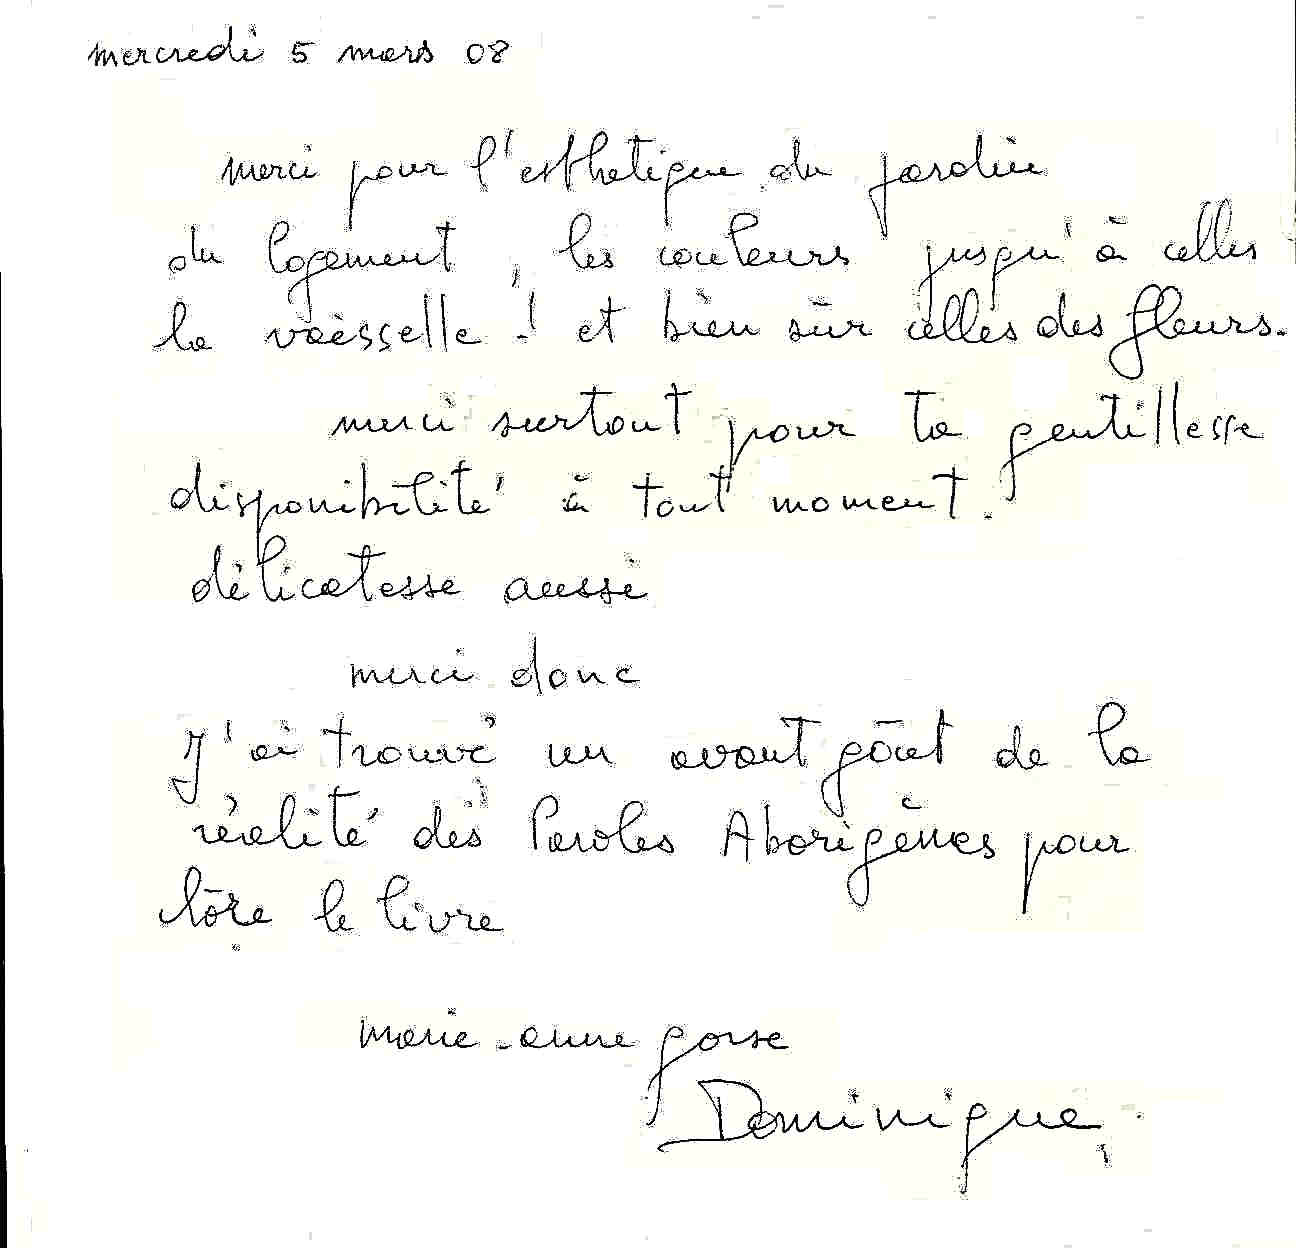 mercredi 5 mars 08
merci pour l'esthetique du jardin
du logement, les couleurs jusqu'à celles
la vaisselle ! et bien sûr celles des fleurs.
merci surtout pour ta gentillesse
disponibilité à tout moment.
délicatesse aussi
merci donc
J'ai trouvé un avant goût de la
réalité des Paroles Aborigènes pour
clôre le livre
marie-anne gorse
Dominique